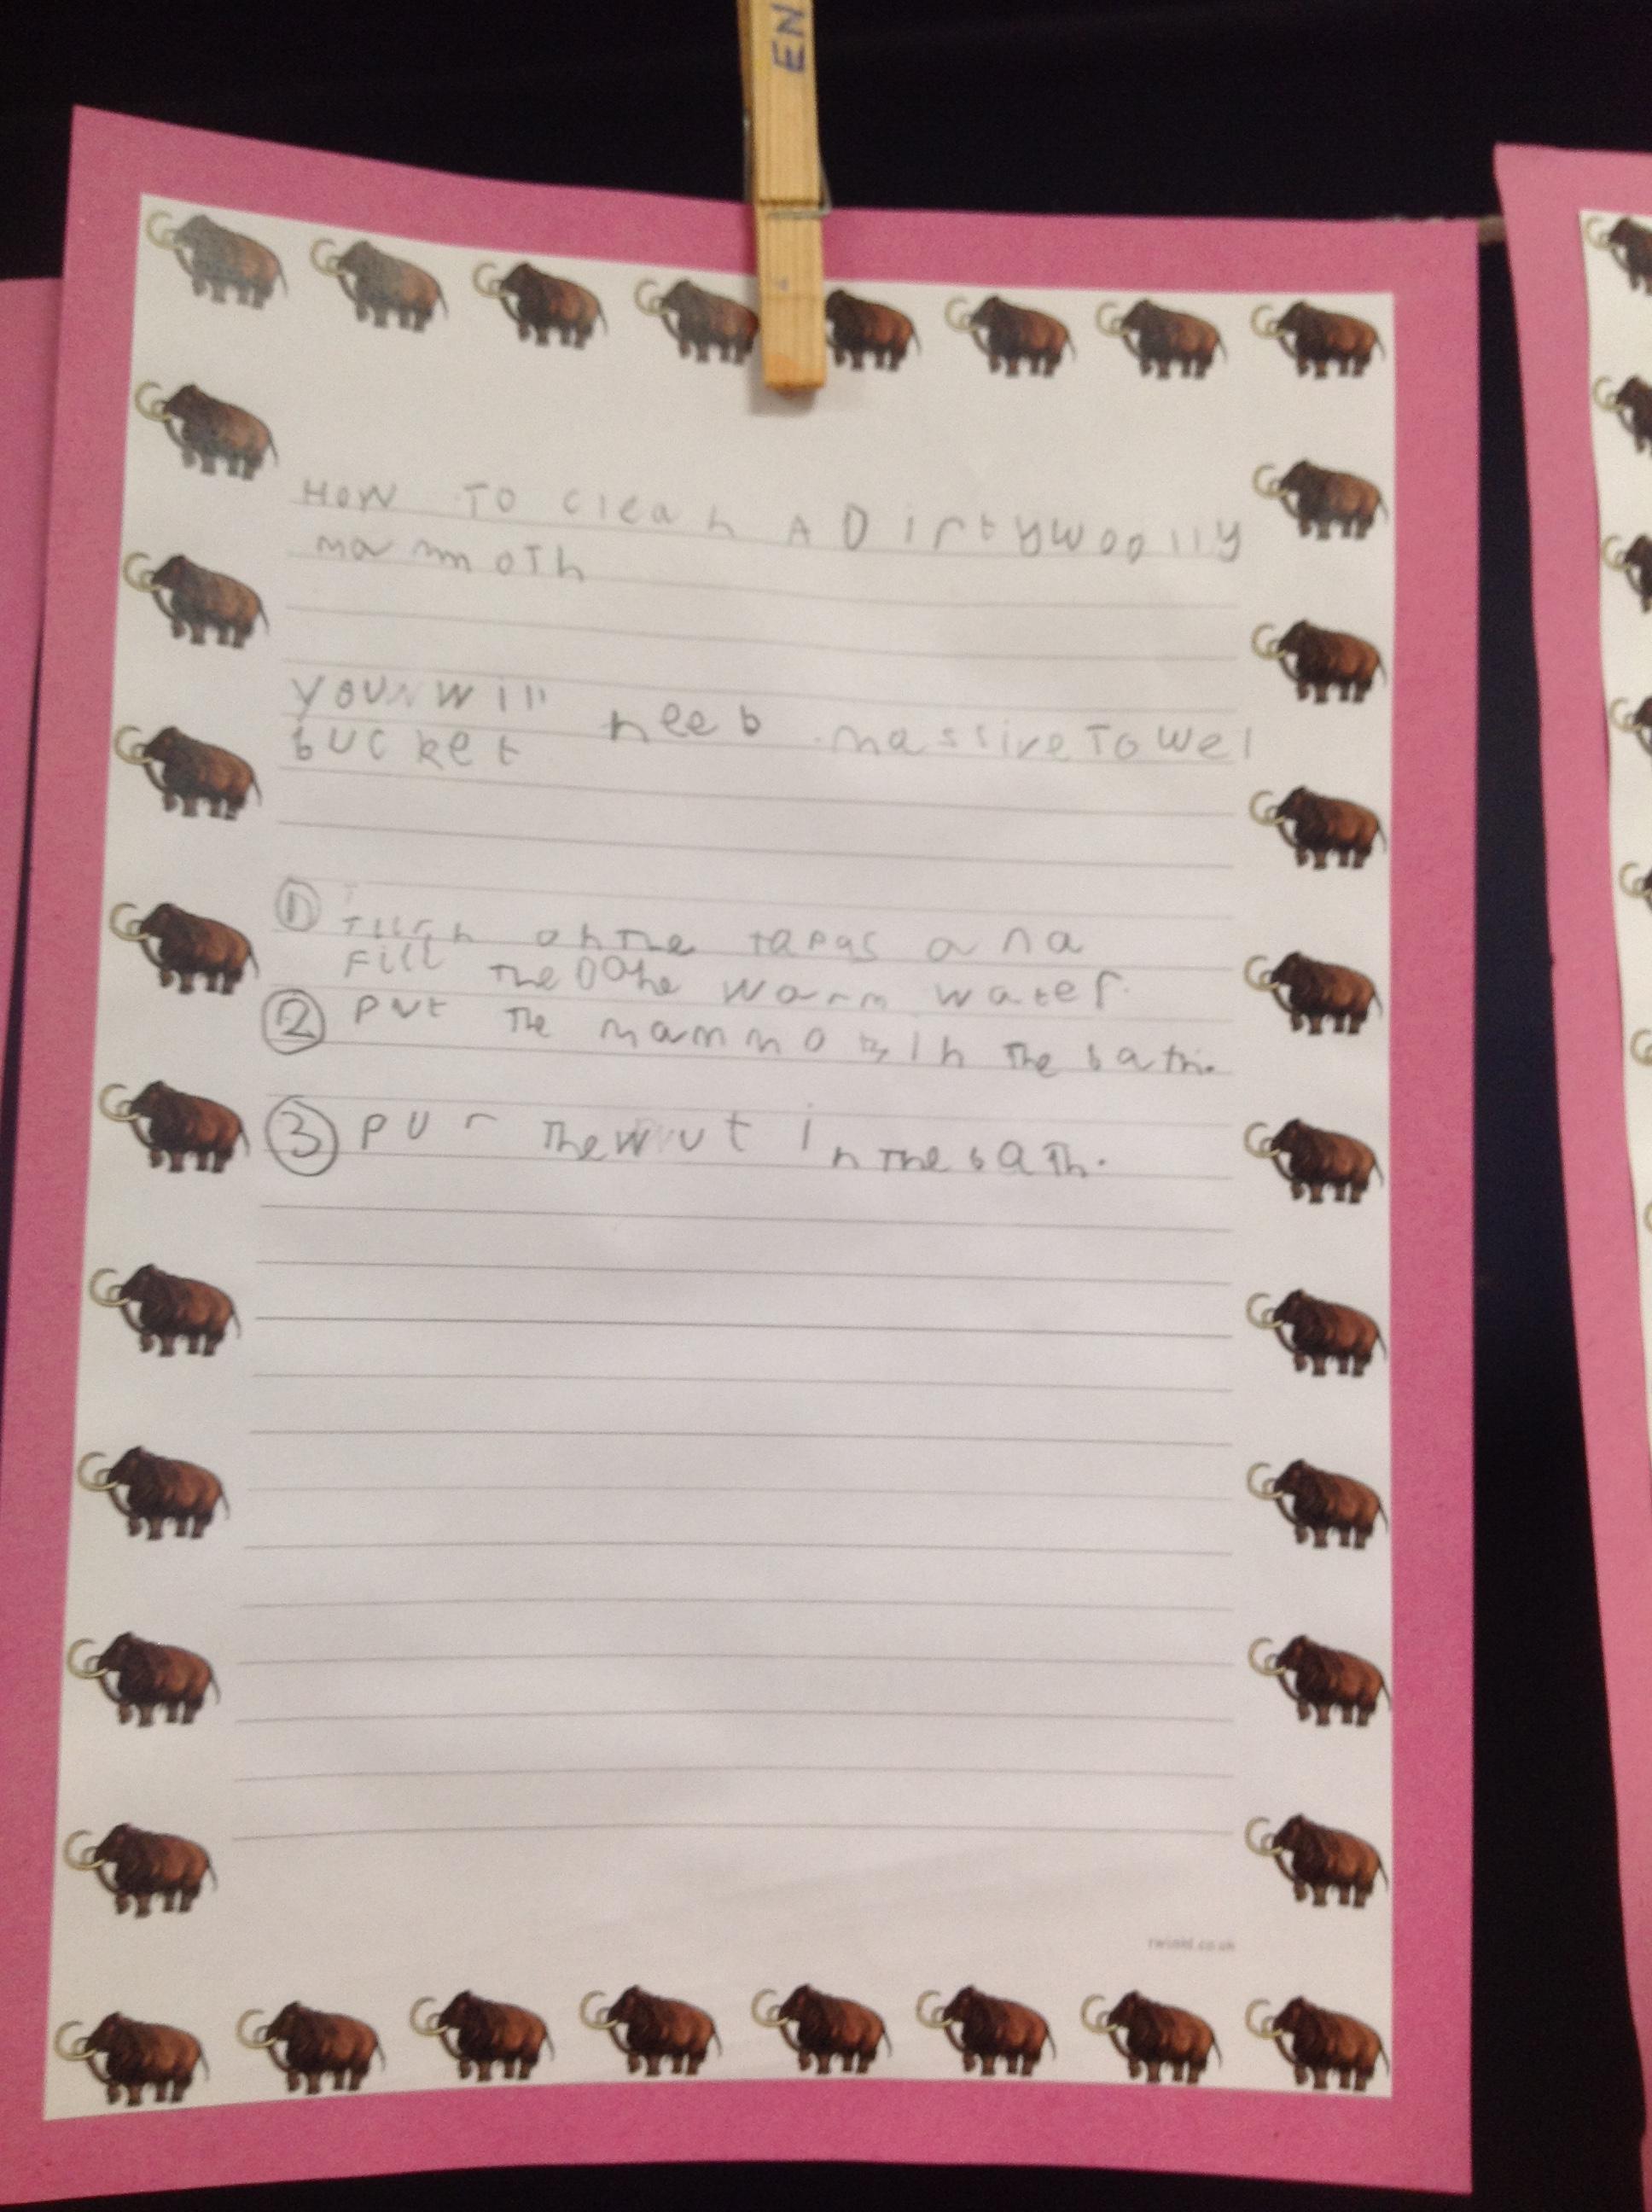 EN
HOW TO clean A Dirty woolly
mammoth
you will need massive Towel
bucket
① Turn on The tapas ana
Fill The warm water.
② put The mammoth in The bath.
③ pur The wut in The bath.
twinkl.co.uk